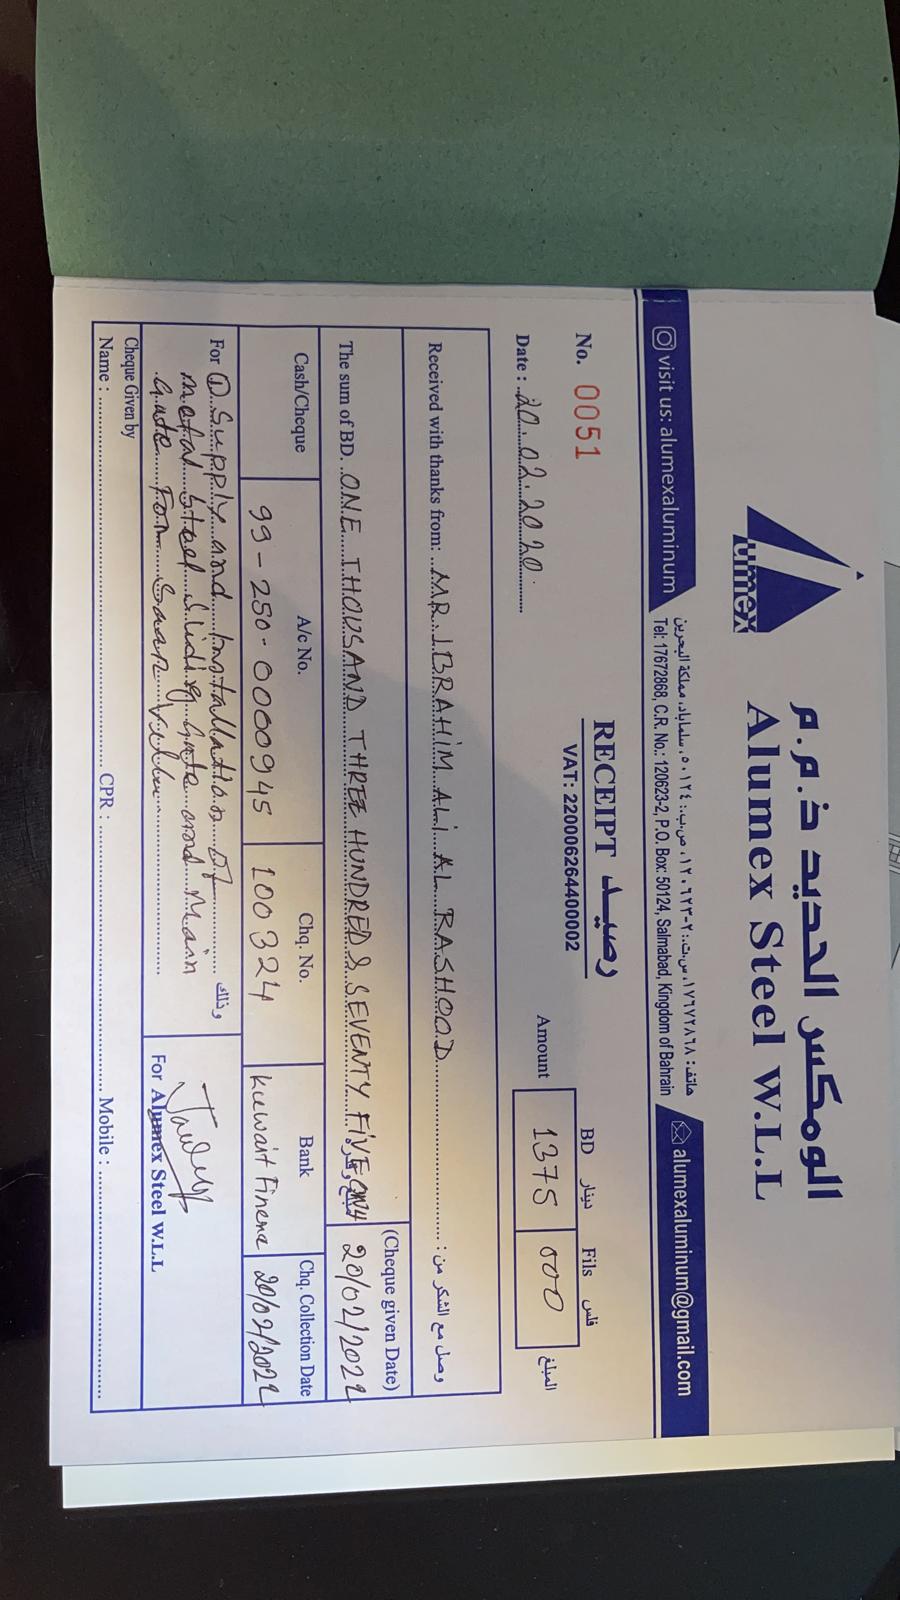 الومكس الحديد ذ.م.م
Alumex Steel W.L.L
umex
visit us: alumexaluminum
هاتف: ١٧٦٧٢٨٦٨، س.ت.: ٢-١٢٠٦٢٣، ص.ب.: ٥٠١٢٤، سلماباد، مملكة البحرين
Tel: 17672868, C.R. No.: 120623-2, P.O. Box: 50124, Salmabad, Kingdom of Bahrain
alumexaluminum@gmail.com
No. 0051
RECEIPT رصيد
VAT: 220006264400002
BD دينار Fils فلس
Amount 1375 000 المبلغ
Date : 20.02.2020
Received with thanks from: MR. IBRAHIM ALI AL RASHOOD وصل مع الشكر من :
(Cheque given Date)
The sum of BD. ONE THOUSAND THREE HUNDRED & SEVENTY FIVE ONLY 20/02/2022
Cash/Cheque A/c No. Chq. No. Bank Chq. Collection Date
99-250-0000945 100324 Kuwait Finance 20/02/2022
For ① Supply and installation of وذلك
metal steel sliding gate and Main
gate For Saar Villa
For Alumex Steel W.L.L
Cheque Given by
Name : CPR : Mobile :